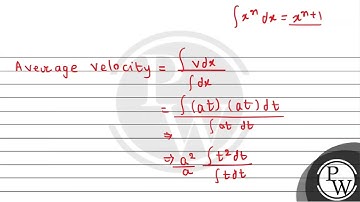 ∫xⁿ dx = xⁿ⁺¹
Average velocity = ∫vdx / ∫dx
= ∫(at) (at) dt / ∫at dt
⇒
⇒ a²/a ∫t²dt / ∫tdt
P
W
P
W